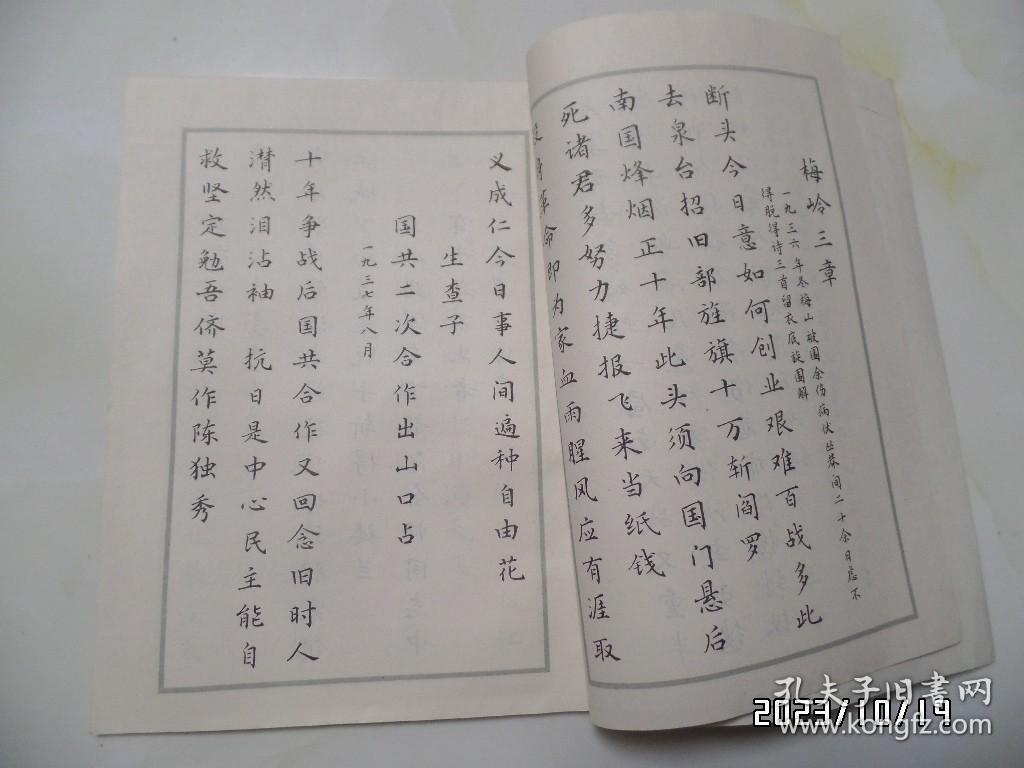 梅岭三章
一九三六年冬梅山被围余伤病伏丛莽间二十余日虑不
得脱得诗三首留衣底旋围解
断头今日意如何创业艰难百战多此
去泉台招旧部旌旗十万斩阎罗
南国烽烟正十年此头须向国门悬后
死诸君多努力捷报飞来当纸钱
革命即为家血雨腥风应有涯取
义成仁今日事人间遍种自由花
生查子
国共二次合作出山口占
一九三七年八月
十年争战后国共合作又回念旧时人
潸然泪沾袖 抗日是中心民主能自
救坚定勉吾侪莫作陈独秀
孔夫子旧书网
www.kongfz.com
2023/10/19